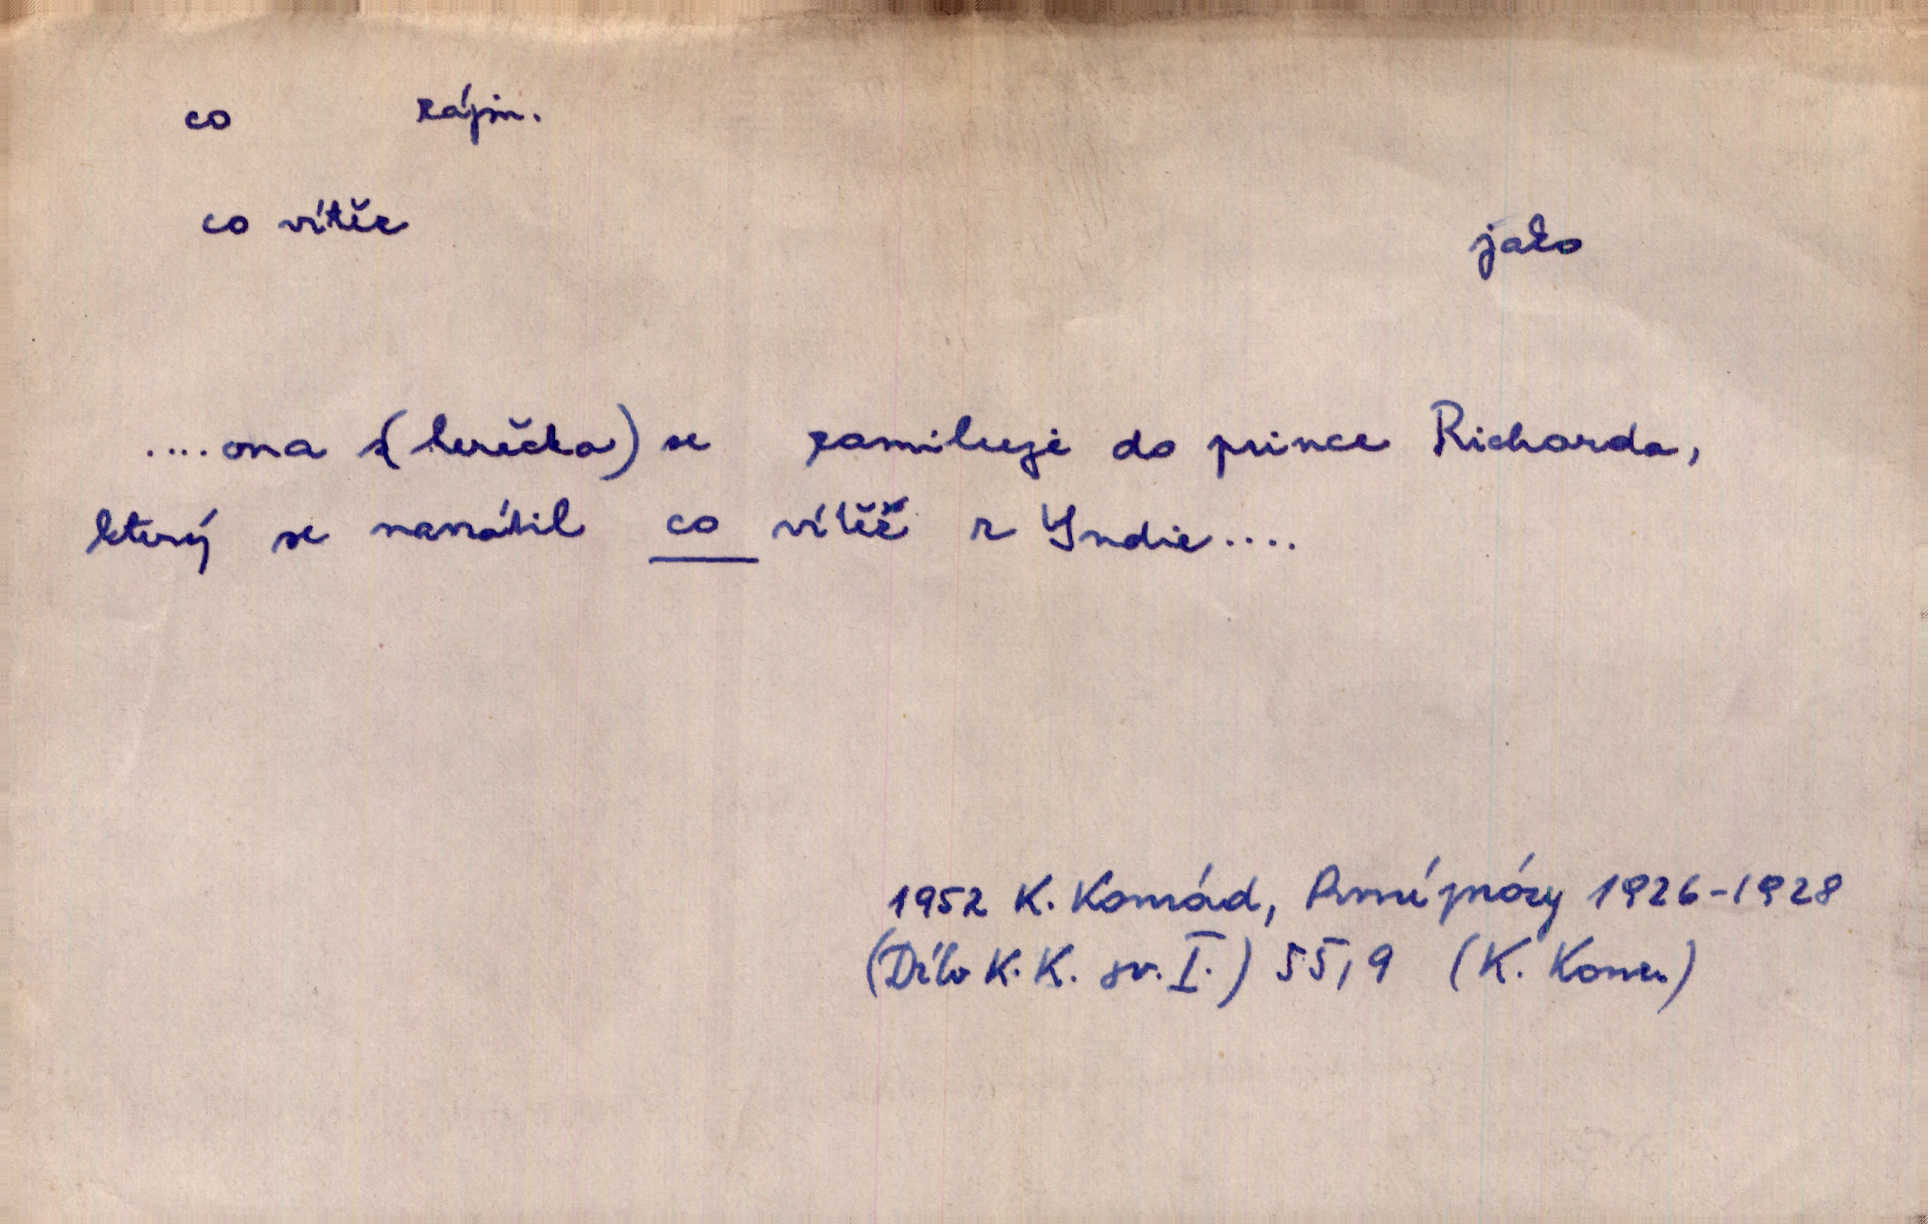 co zájm.
co vítěz
jako
....ona (herečka) se zamiluje do prince Richarda,
který se navrátil co vítěz z Indie....
1952 K. Konrád, První prózy 1926-1928
(Dílo K. K. sv. I.) 55,9 (K. Konr.)